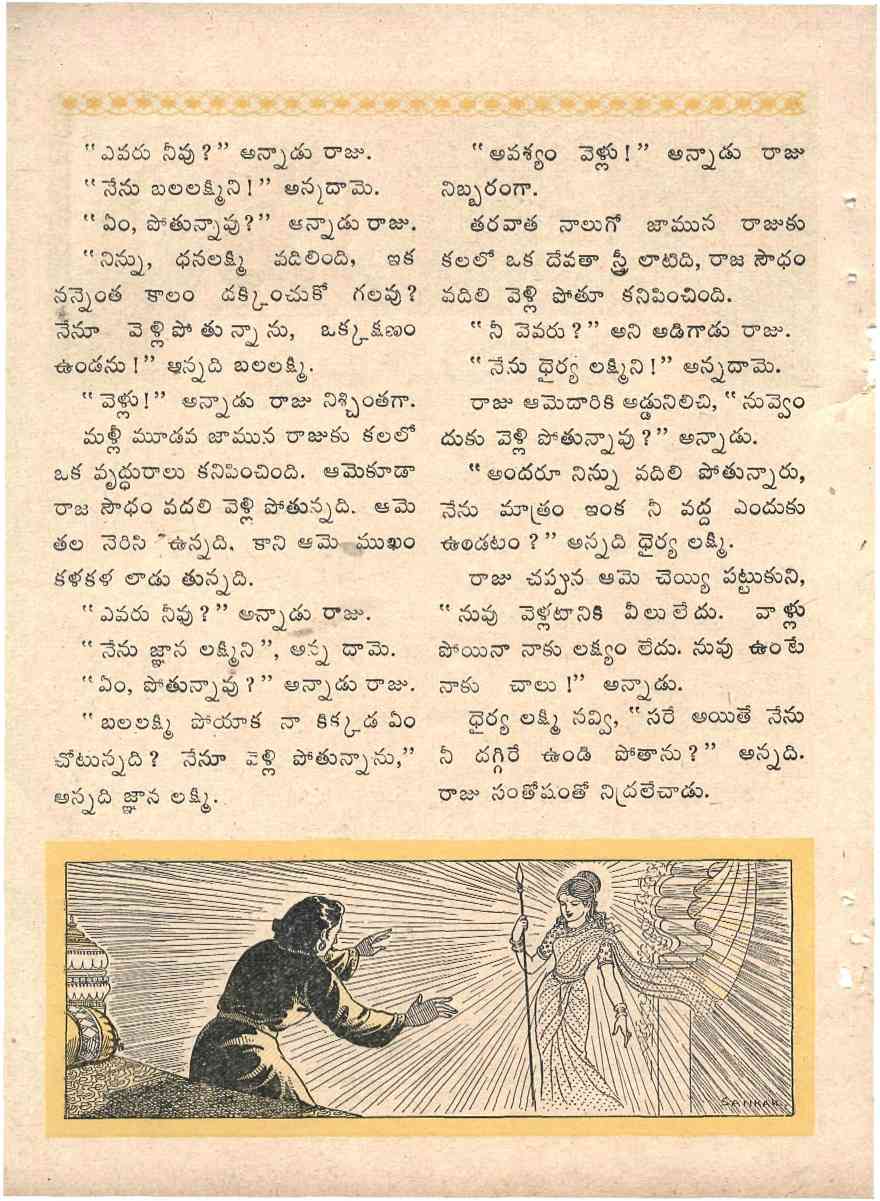 “ఎవరు నీవు?” అన్నాడు రాజు.
“నేను బలలక్ష్మిని!” అన్నదామె.
“ఏం, పోతున్నావు?” అన్నాడు రాజు.
“నిన్ను, ధనలక్ష్మి వదిలింది, ఇక
నన్నెంత కాలం డక్కించుకో గలవు?
నేనూ వెళ్లిపోతున్నాను, ఒక్కక్షణం
ఉండను!” అన్నది బలలక్ష్మి.
“వెళ్లు!” అన్నాడు రాజు నిశ్చింతగా.
మళ్లీ మూడవ జామున రాజుకు కలలో
ఒక వృద్ధురాలు కనిపించింది. ఆమెకూడా
రాజ సౌధం వదలి వెళ్లి పోతున్నది. ఆమె
తల నెరిసి ఉన్నది. కాని ఆమె ముఖం
కళకళ లాడు తున్నది.
“ఎవరు నీవు?” అన్నాడు రాజు.
“నేను జ్ఞాన లక్ష్మిని”, అన్న దామె.
“ఏం, పోతున్నావు?” అన్నాడు రాజు.
“బలలక్ష్మి పోయాక నా కిక్కడ ఏం
చోటున్నది? నేనూ వెళ్లి పోతున్నాను,”
అన్నది జ్ఞాన లక్ష్మి.
“అవశ్యం వెళ్లు!” అన్నాడు రాజు
నిబ్బరంగా.
తరవాత నాలుగో జామున రాజుకు
కలలో ఒక దేవతా స్త్రీ లాటిది, రాజ సౌధం
వదిలి వెళ్లి పోతూ కనిపించింది.
“నీ వెవరు?” అని అడిగాడు రాజు.
“నేను ధైర్య లక్ష్మిని!” అన్నదామె.
రాజు ఆమెదారికి అడ్డునిలిచి, “నువ్వెం
దుకు వెళ్లి పోతున్నావు?” అన్నాడు.
“అందరూ నిన్ను వదిలి పోతున్నారు,
నేను మాత్రం ఇంక నీ వద్ద ఎందుకు
ఉండటం?” అన్నది ధైర్య లక్ష్మి.
రాజు చప్పున ఆమె చెయ్యి పట్టుకుని,
“నువు వెళ్లటానికి వీలులేదు. వాళ్లు
పోయినా నాకు లక్ష్యం లేదు. నువు ఉంటే
నాకు చాలు!” అన్నాడు.
ధైర్య లక్ష్మి నవ్వి, “సరే అయితే నేను
నీ దగ్గిరే ఉండి పోతాను?” అన్నది.
రాజు సంతోషంతో నిద్రలేచాడు.
SANKAR